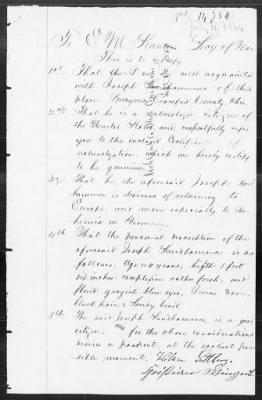 14,734
July 11, 1864
To E. M. Stanton Secy of War
This is to certify
1st. That the I am well acquainted
with Joseph Lonshammer of this
place. Bucyrus, Crawford County, Ohio.
2nd. That he is a naturalized citizen of
the United States, and respectfully refers
you to the inclosed Certificate of
naturalization, which we hereby certify
to be genuine.
3d. That he, the aforesaid Joseph
hammer is desirous of returning to
Europe and more especially to Bo-
hemia in Germany.
4th. That the personal description of the
aforesaid Joseph Lonshammer is as
follows: Age 40 years, height 5 feet
six inches complexion rather fresh, and
florid grayish blue eyes, Roman nose,
black hair, & sandy beard.
5th. The said Joseph Lonshammer, is a good
citizen, and for the above considerations
desires a passport, at the earliest pos-
sible moment.